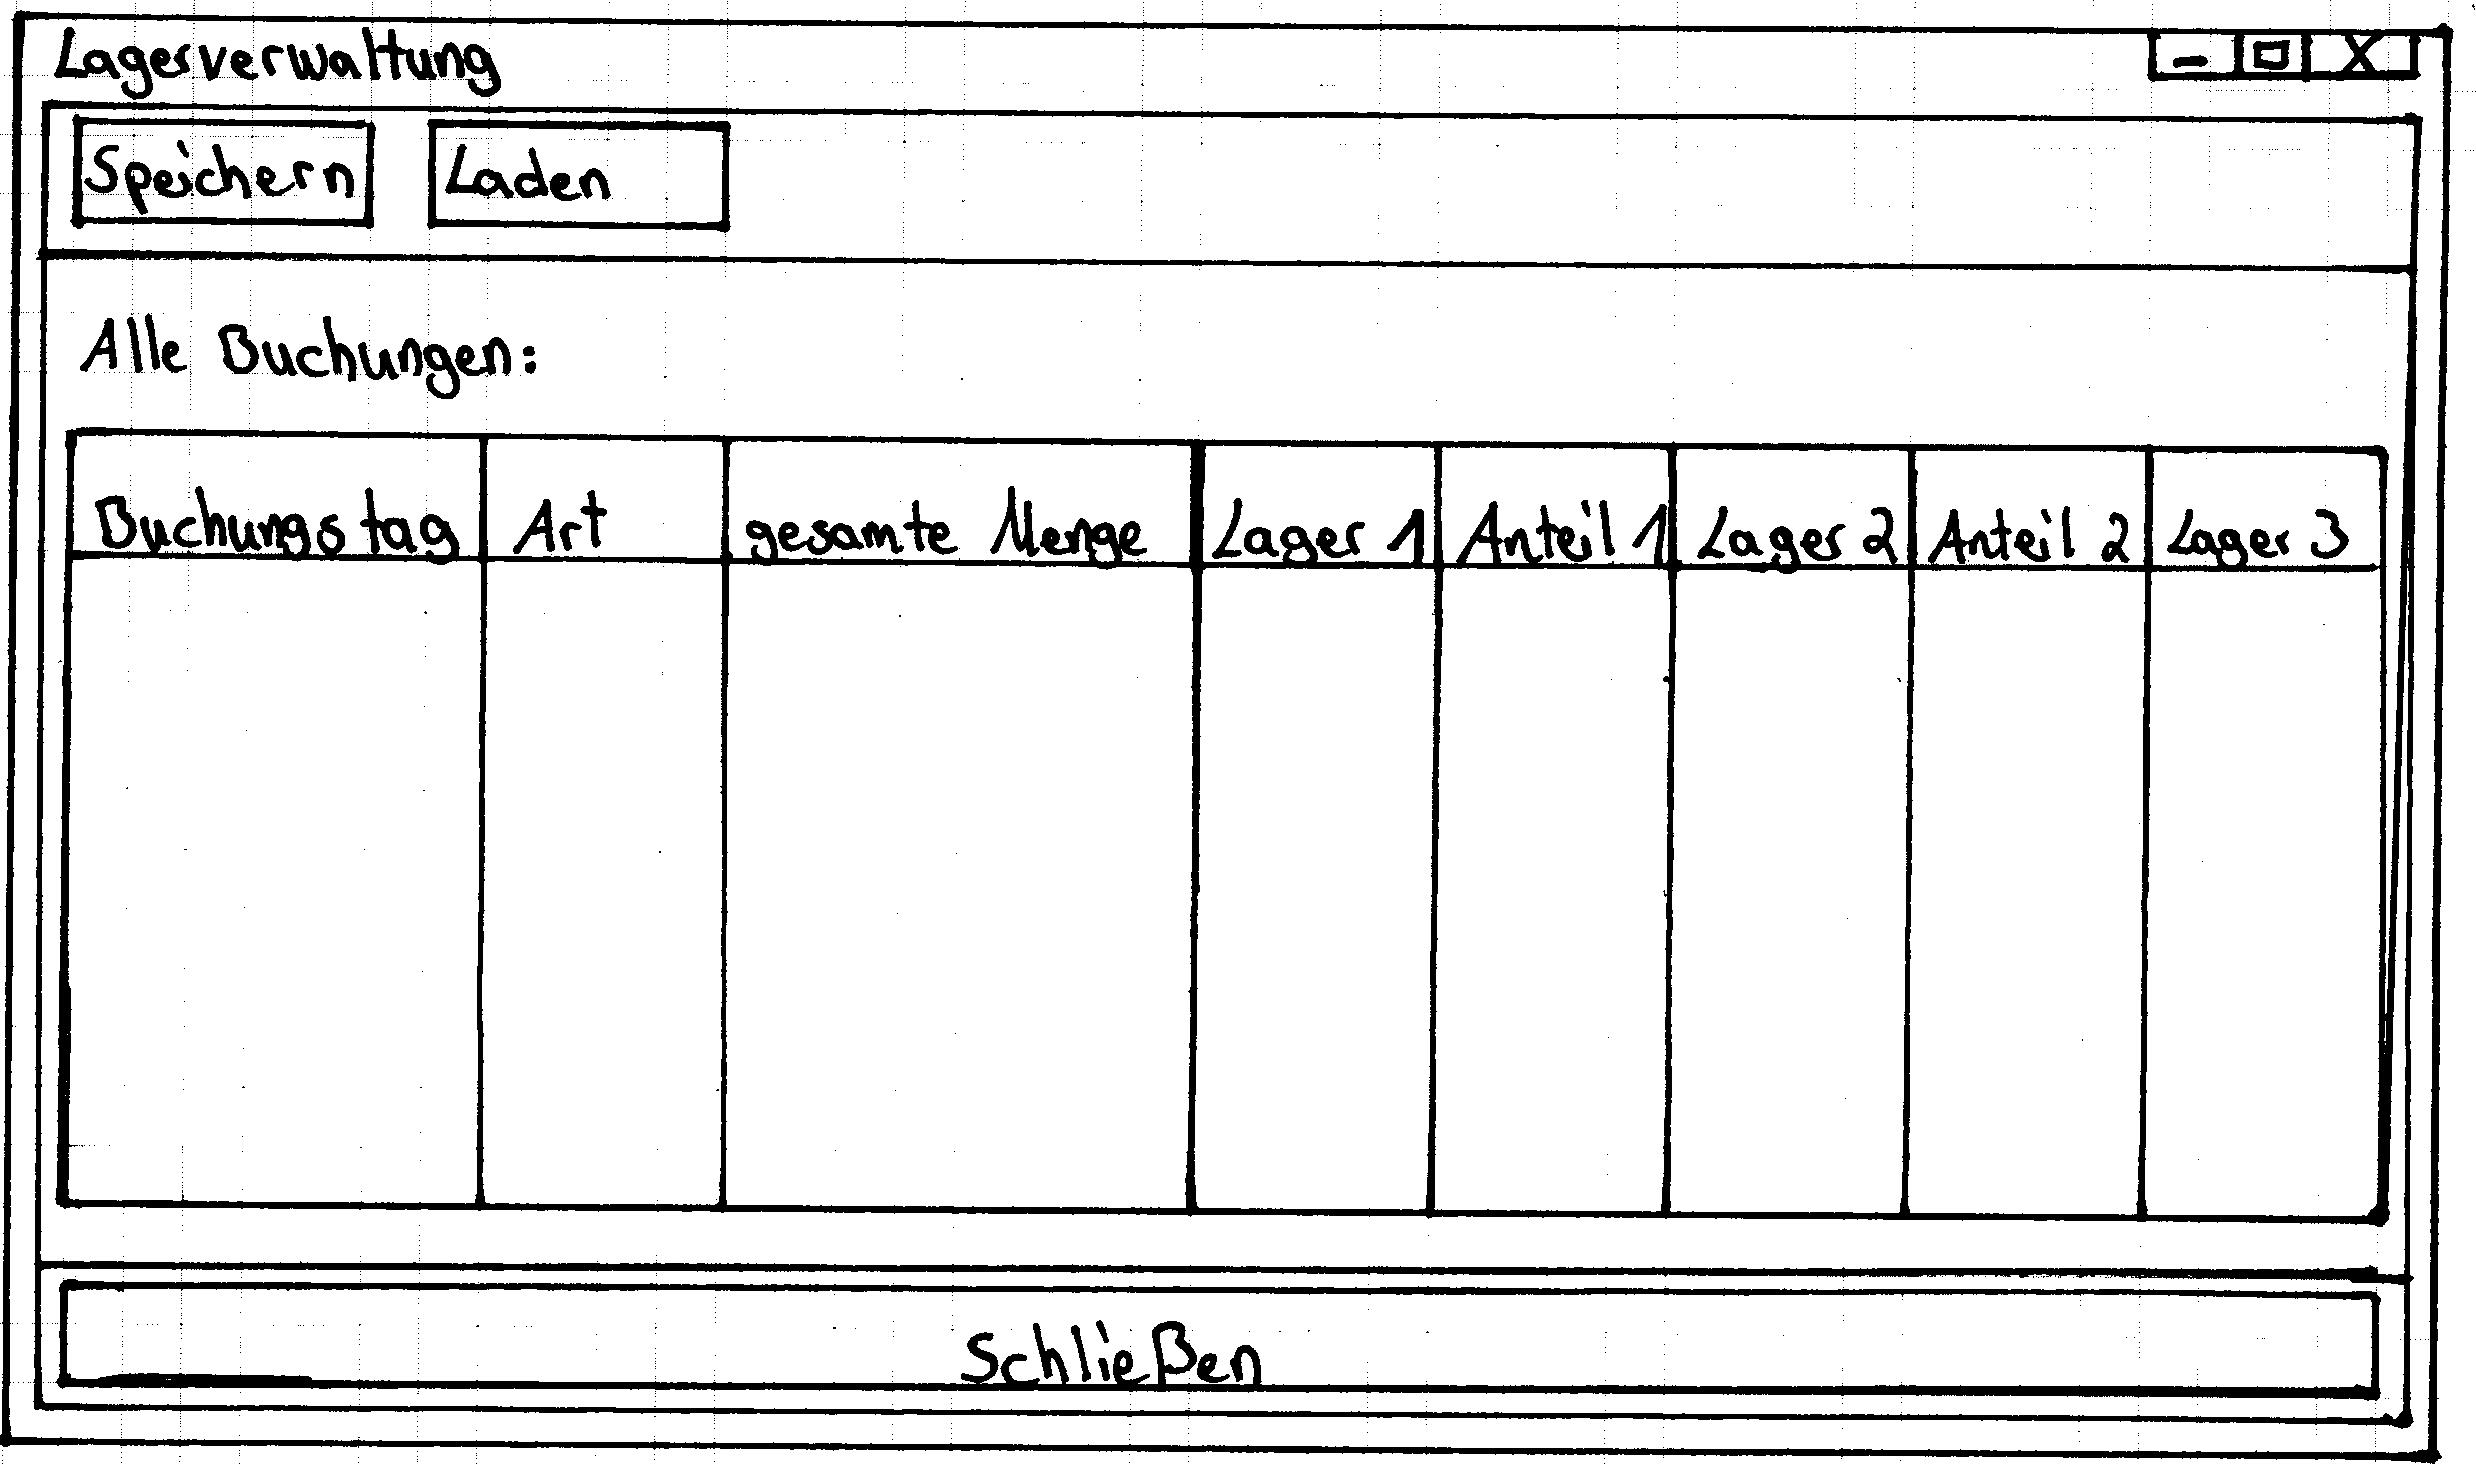 Lagerverwaltung
Speichern Laden
Alle Buchungen:
Buchungstag Art gesamte Menge Lager 1 Anteil 1 Lager 2 Anteil 2 Lager 3
Schließen